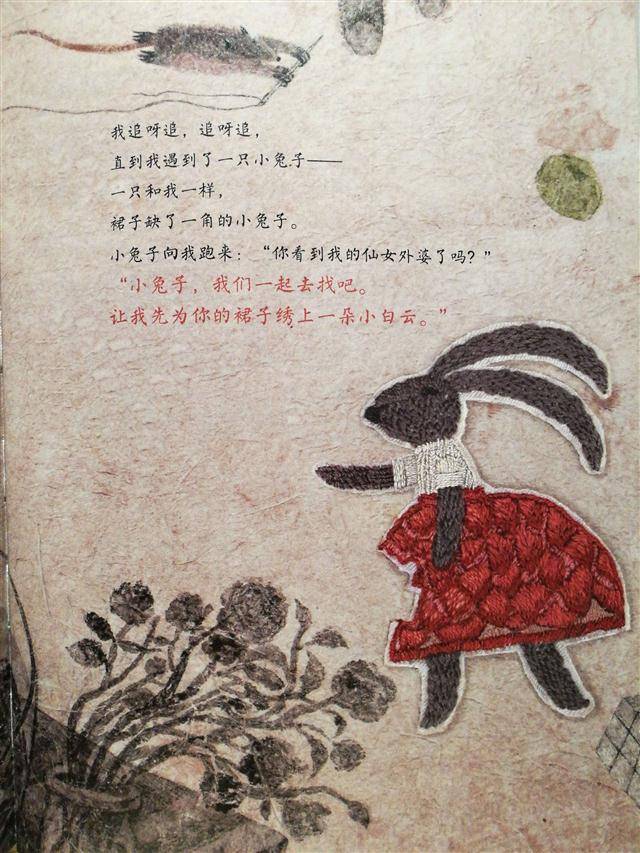 我追呀追，追呀追，
直到我遇到了一只小兔子——
一只和我一样，
裙子缺了一角的小兔子。
小兔子向我跑来：“你看到我的仙女外婆了吗？”
“小兔子，我们一起去找吧。
让我先为你的裙子绣上一朵小白云。”